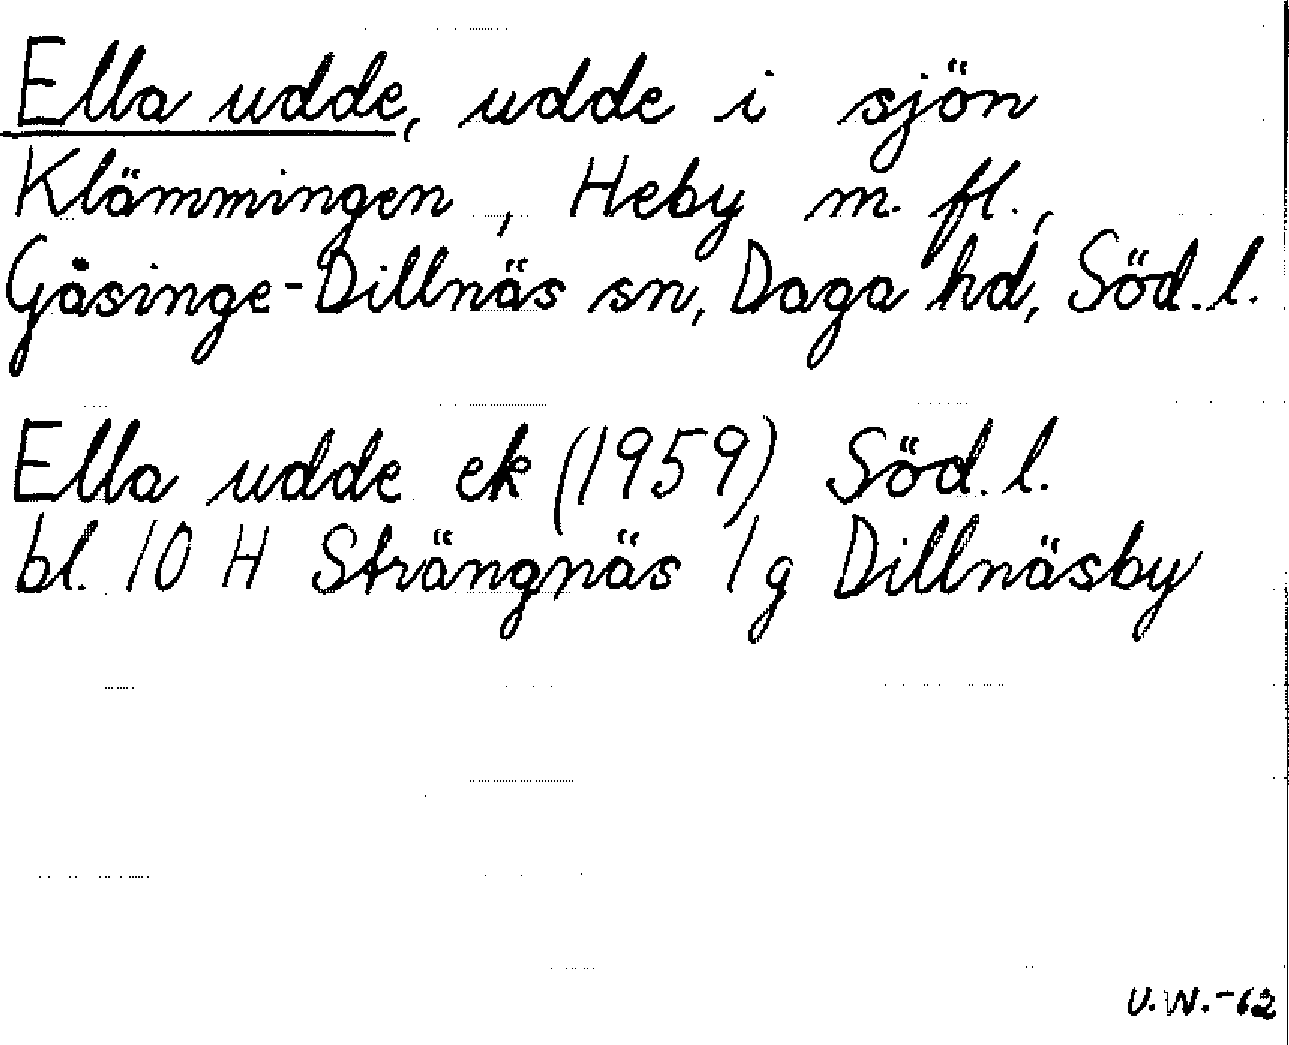 Ella udde, udde i sjön
Klämmingen, Heby m. fl.,
Gåsinge-Dillnäs sn, Daga hd, Söd. l.
Ella udde ek (1959) Söd. l.
bl. 10 H Strängnäs 1 g Dillnäsby
U.W.-62